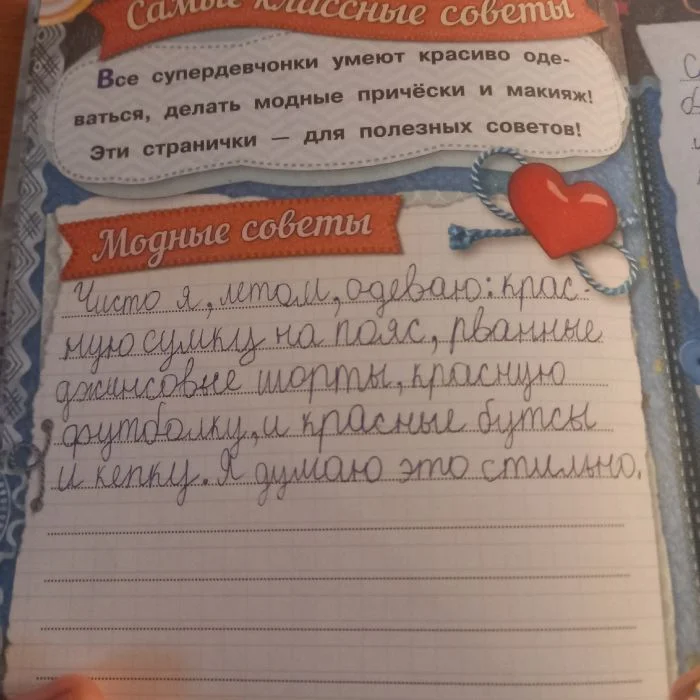 Самые классные советы
Все супердевчонки умеют красиво оде-
ваться, делать модные причёски и макияж!
Эти странички — для полезных советов!
Модные советы
Чисто я, летом, одеваю: крас-
ную сумку на пояс, рванные
джинсовые шорты, красную
футболку, и красные бутсы
и кепку. Я думаю это стильно.